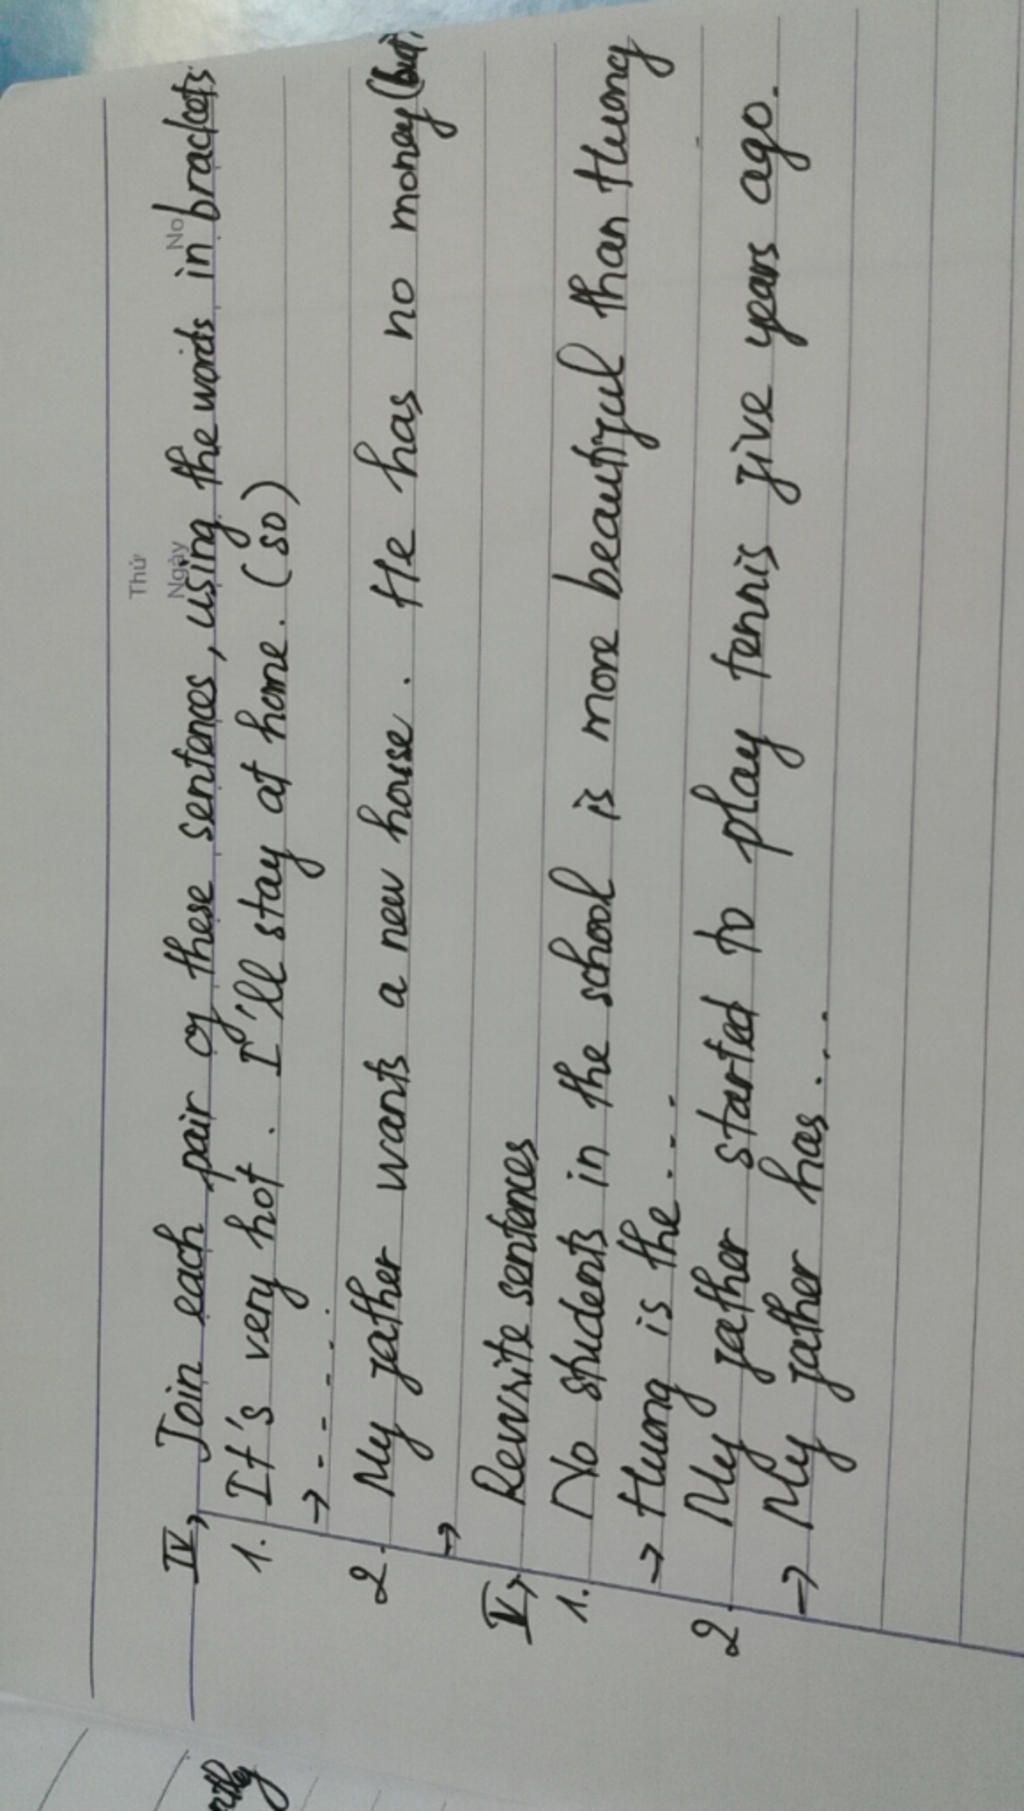 Thứ
Ngày No
IV, Join each pair of these sentences, using the words in brackets
1. It's very hot. I'll stay at home. (so)
→ - - - .
2. My father wants a new house. He has no money (but)
→
V, Rewrite sentences
1. No students in the school is more beautiful than Huong
→ Huong is the ....
2. My father started to play tennis five years ago.
→ My father has....